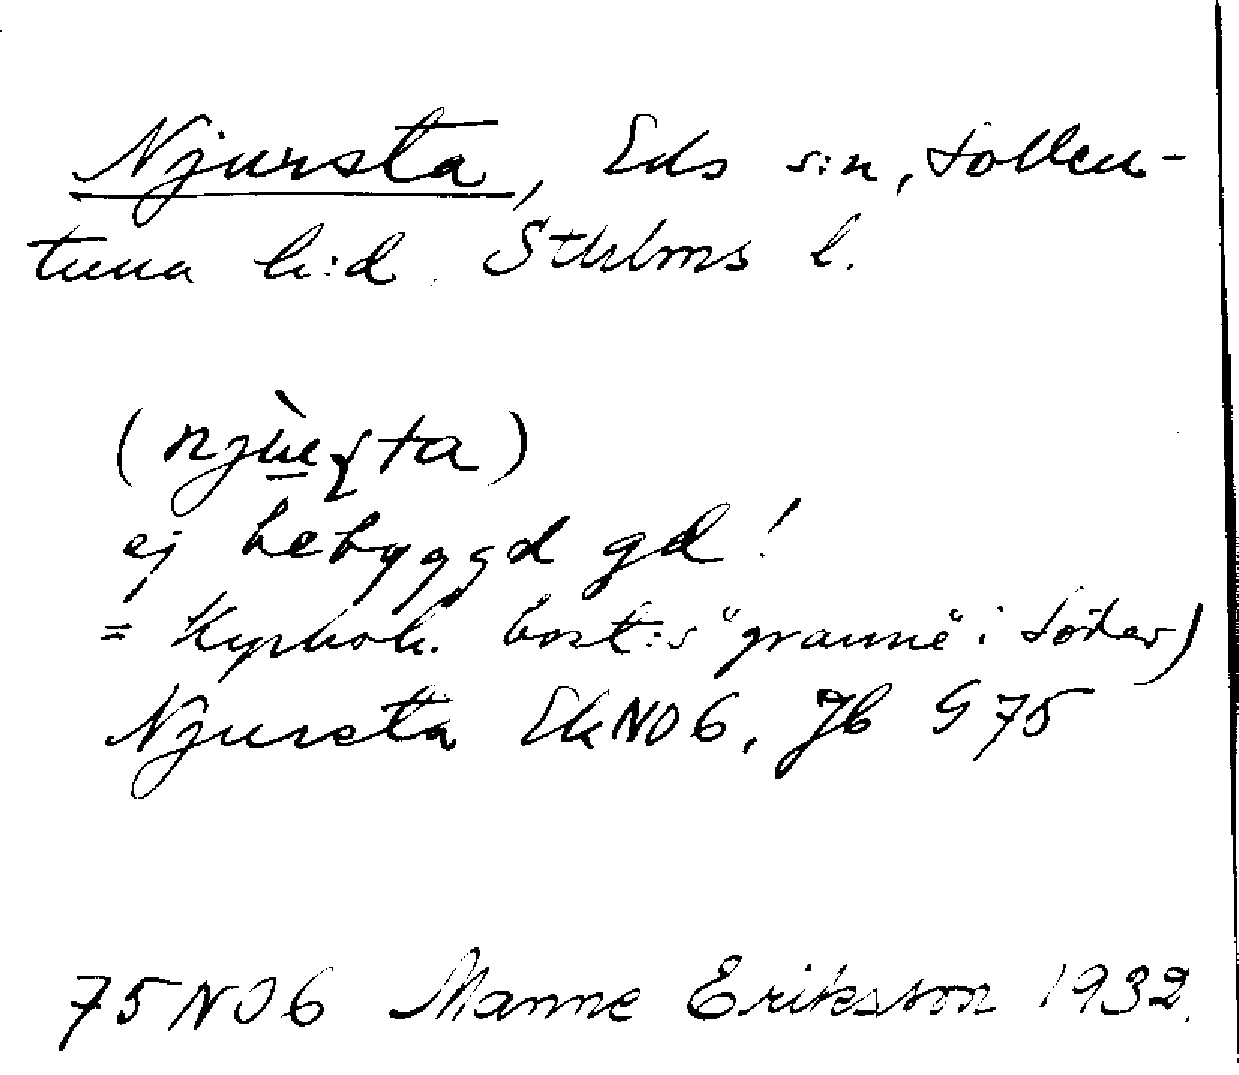 Njursta, Eds s:n, Sollen-
tuna h:d. Sthlms l.
ej bebyggd gd!
= Kyrkoh. bost:s "granne" i söder)
Njursta Ek NO6, Jb G 75
75NO6 Manne Eriksson 1932.